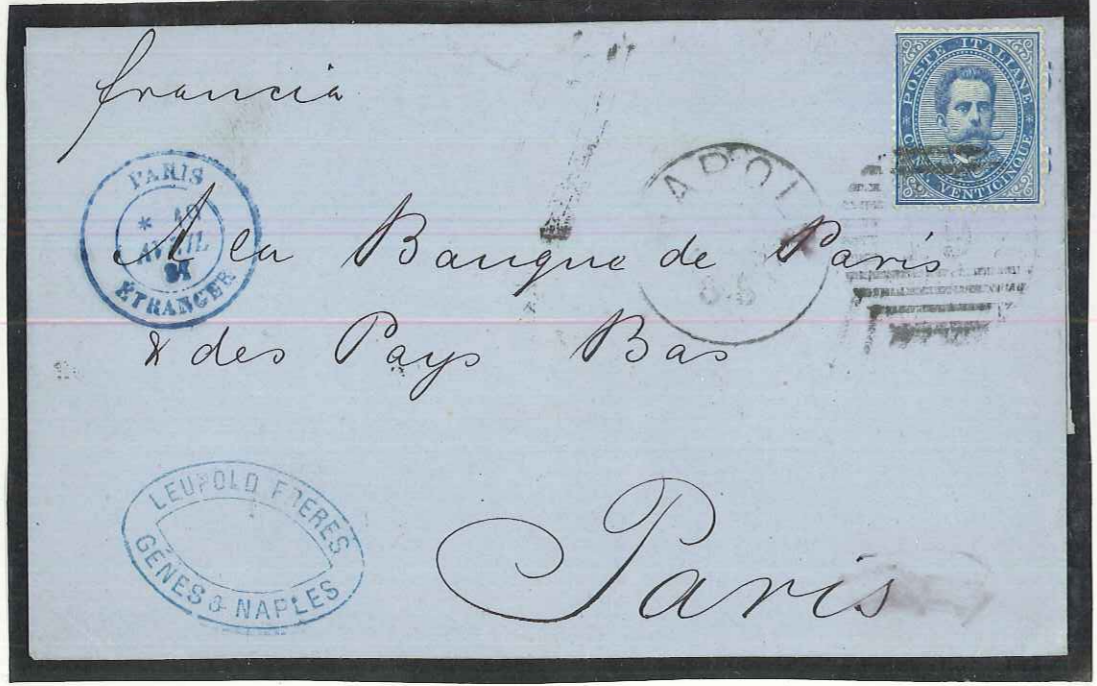 francia
POSTE ITALIANE
VENTICINQUE
PARIS
AVRIL
ETRANGER
A la Banque de Paris
& des Pays Bas
LEUPOLD FRERES
GÊNES & NAPLES
Paris